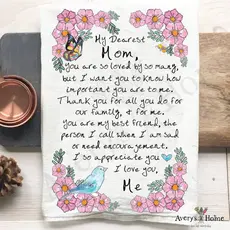 My Dearest
Mom,
You are so loved by so many,
but I want you to know how
important you are to me.
Thank you for all you do for
our family, & for me.
You are my best friend, the
person I call when I am sad
or need encouragement.
I so appreciate you
I love you,
Me
Avery's Home